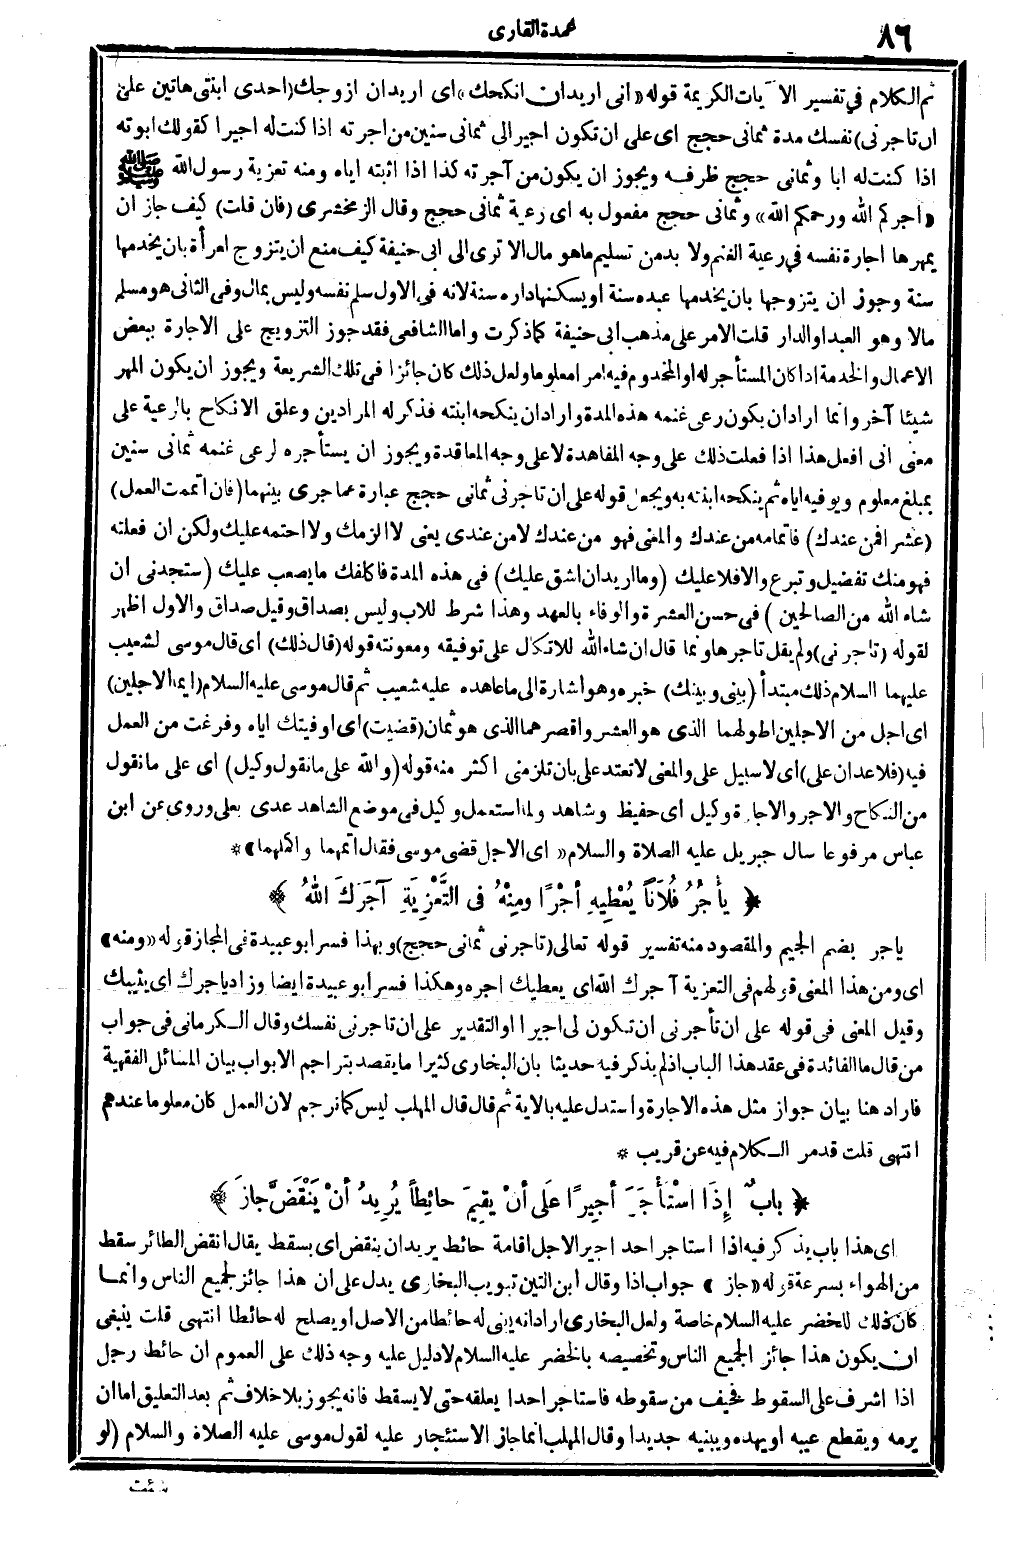 ٨٦
عمدة القارى
ثم الكلام في تفسير الآيات الكريمة قوله «انى اريد ان انكحك» اى اريد ان ازوجك (احدى ابنتى هاتين على
ان تاجرنى) نفسك مدة ثمانى حجج اى على ان تكون اجيرالى ثمانى سنين من اجرته اذا كنت له اجيرا كقولك ابوته
اذا كنت له ابا وثمانى حجج ظرفه ويجوز ان يكون من آجرته كذا اذا اثبته اياه ومنه تعزية رسول الله ﷺ
«آجركم الله ورحمكم الله» وثمانى حجج مفعول به اى رعية ثمانى حجج وقال الزمخشرى (فان قلت) كيف جاز ان
يمهرها اجارة نفسه في رعية الغنم ولا بد من تسليم ماهو مال الا ترى الى ابى حنيفة كيف منع ان يتزوج امرأة بان يخدمها
سنة وجوز ان يتزوجها بان يخدمها عبده سنة او يسكنها داره سنة لانه فى الاول سلم نفسه وليس بمال وفى الثانى هو مسلم
مالا وهو العبد او الدار قلت الامر على مذهب ابى حنيفة كما ذكرت واما الشافعى فقد جوز التزويج على الاجارة ببعض
الاعمال والخدمة اذا كان المستأجر له او المخدوم فيه امرا معلوما ولعل ذلك كان جائزا فى تلك الشريعة ويجوز ان يكون المهر
شيئا آخر وانما اراد ان يكون رعى غنمه هذه المدة واراد ان ينكحه ابنته فذكر له المرادين وعلق الانكاح بالرعية على
معنى انى افعل هذا اذا فعلت ذلك على وجه المفاهدة لا على وجه المعاقدة ويجوز ان يستأجره لرعى غنمه ثمانى سنين
بمبلغ معلوم ويوفيه اياه ثم ينكحه ابنته به ويجعل قوله على ان تاجرنى ثمانى حجج عبارة عما جرى بينهما (فان اتممت العمل)
(عشرا فمن عندك) فاتمامه من عندك والمعنى فهو من عندك لا من عندى يعنى لا الزمك ولا احتمه عليك ولكن ان فعلته
فهو منك تفضيل وتبرع والا فلا عليك (وما اريد ان اشق عليك) فى هذه المدة فاكلفك ما يصعب عليك (ستجدنى ان
شاء الله من الصالحين) فى حسن العشرة والوفاء بالعهد وهذا شرط للاب وليس بصداق وقيل صداق والاول اظهر
لقوله (تاجرنى) ولم يقل تاجرها وانما قال ان شاء الله للاتكال على توفيقه ومعونته قوله (قال ذلك) اى قال موسى لشعيب
عليهما السلام ذلك مبتدأ (بينى وبينك) خبره وهو اشارة الى ما عاهده عليه شعيب ثم قال موسى عليه السلام (ايما الاجلين)
اى اجل من الاجلين اطولهما الذى هو العشر واقصرهما الذى هو ثمان (قضيت) اى اوفيتك اياه وفرغت من العمل
فيه (فلا عدان على) اى لا سبيل على والمعنى لا تعتد على بان تلزمنى اكثر منه قوله (والله على ما نقول وكيل) اى على ما نقول
من النكاح والاجر والاجارة وكيل اى حفيظ وشاهد ولما استعمل وكيل فى موضع الشاهد عدى بعلى وروى عن ابن
عباس مرفوعا سال جبريل عليه الصلاة والسلام «اى الاجل قضى موسى فقال اتمهما واكملهما» *
﴿ يأجُرُ فُلَانًا يُعْطِيهِ أجْرًا ومِنْهُ فى التَّعْزِيَةِ آجَرَكَ اللهُ ﴾
ياجر بضم الجيم والمقصود منه تفسير قوله تعالى (تاجرنى ثمانى حجج) وبهذا فسر ابو عبيدة فى المجاز قوله «ومنه»
اى ومن هذا المعنى قولهم فى التعزية آجرك الله اى يعطيك اجره وهكذا فسر ابو عبيدة ايضا وزاد ياجرك اى يثيبك
وقيل المعنى فى قوله على ان تأجرنى ان تكون لى اجيرا او التقدير على ان تاجرنى نفسك وقال الكرمانى فى جواب
من قال ما الفائدة فى عقد هذا الباب اذ لم يذكر فيه حديثا بان البخارى كثيرا ما يقصد بتراجم الابواب بيان المسائل الفقهية
فاراد هنا بيان جواز مثل هذه الاجارة واستدل عليه بالاية ثم قال قال المهلب ليس كما ترجم لان العمل كان معلوما عندهم
انتهى قلت قد مر الكلام فيه عن قريب *
﴿ بابٌ إِذَا اسْتَأْجَرَ أجِيرًا عَلَى أنْ يقِيمَ حائِطاً يُرِيدُ أنْ يَنْقَضَّ جازَ ﴾
اى هذا باب يذكر فيه اذا استاجر احد اجير الاجل اقامة حائط يريد ان ينقض اى يسقط يقال انقض الطائر سقط
من الهواء بسرعة قوله «جاز» جواب اذا وقال ابن التين تبويب البخارى يدل على ان هذا جائز لجميع الناس وانما
كان ذلك للخضر عليه السلام خاصة ولعل البخارى اراد انه يبنى له حائطا من الاصل او يصلح له حائطا انتهى قلت ينبغى
ان يكون هذا جائز الجميع الناس وتخصيصه بالخضر عليه السلام لا دليل عليه وجه ذلك على العموم ان حائط رجل
اذا اشرف على السقوط فخيف من سقوطه فاستاجر احدا يعلقه حتى لا يسقط فانه يجوز بلا خلاف ثم بعد التعليق اما ان
يرمه ويقطع عيبه او يهده ويبنيه جديدا وقال المهلب انما جاز الاستئجار عليه لقول موسى عليه الصلاة والسلام (لو
شئت